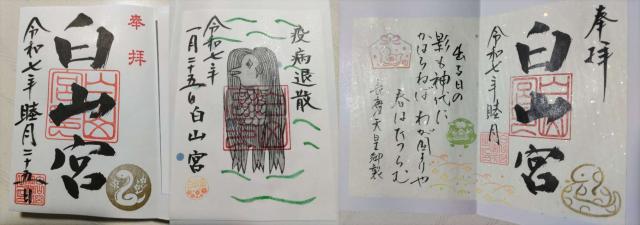 奉拝
白山宮
令和七年睦月二十五日
疫病退散
令和七年
一月二十五日白山宮
奉拝
白山宮
令和七年睦月
出る日の
影も神代に
かはらねばわが國よりや
春はたつらむ
天皇御製